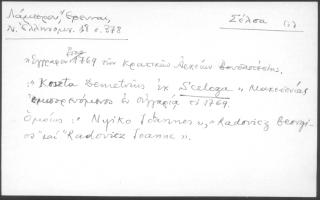 Λάμπρου, Έρευναι, Σέλσα
Ν. Ἑλληνομν. 18 σ. 378
Ἔγγραφον 1769 τῶν Κρατικῶν Ἀρχείων Βουδαπέστης.
:" Kosta Demetrius ἐκ Scelega " Μακεδονίας
ἐμπορευόμενος ἐν Οὐγγαρίᾳ τῷ 1769.
Ὁμοίως : " Nyiko Joannes ", " Radovicz Georgi-
us " καὶ " Radovicz Joannes ".